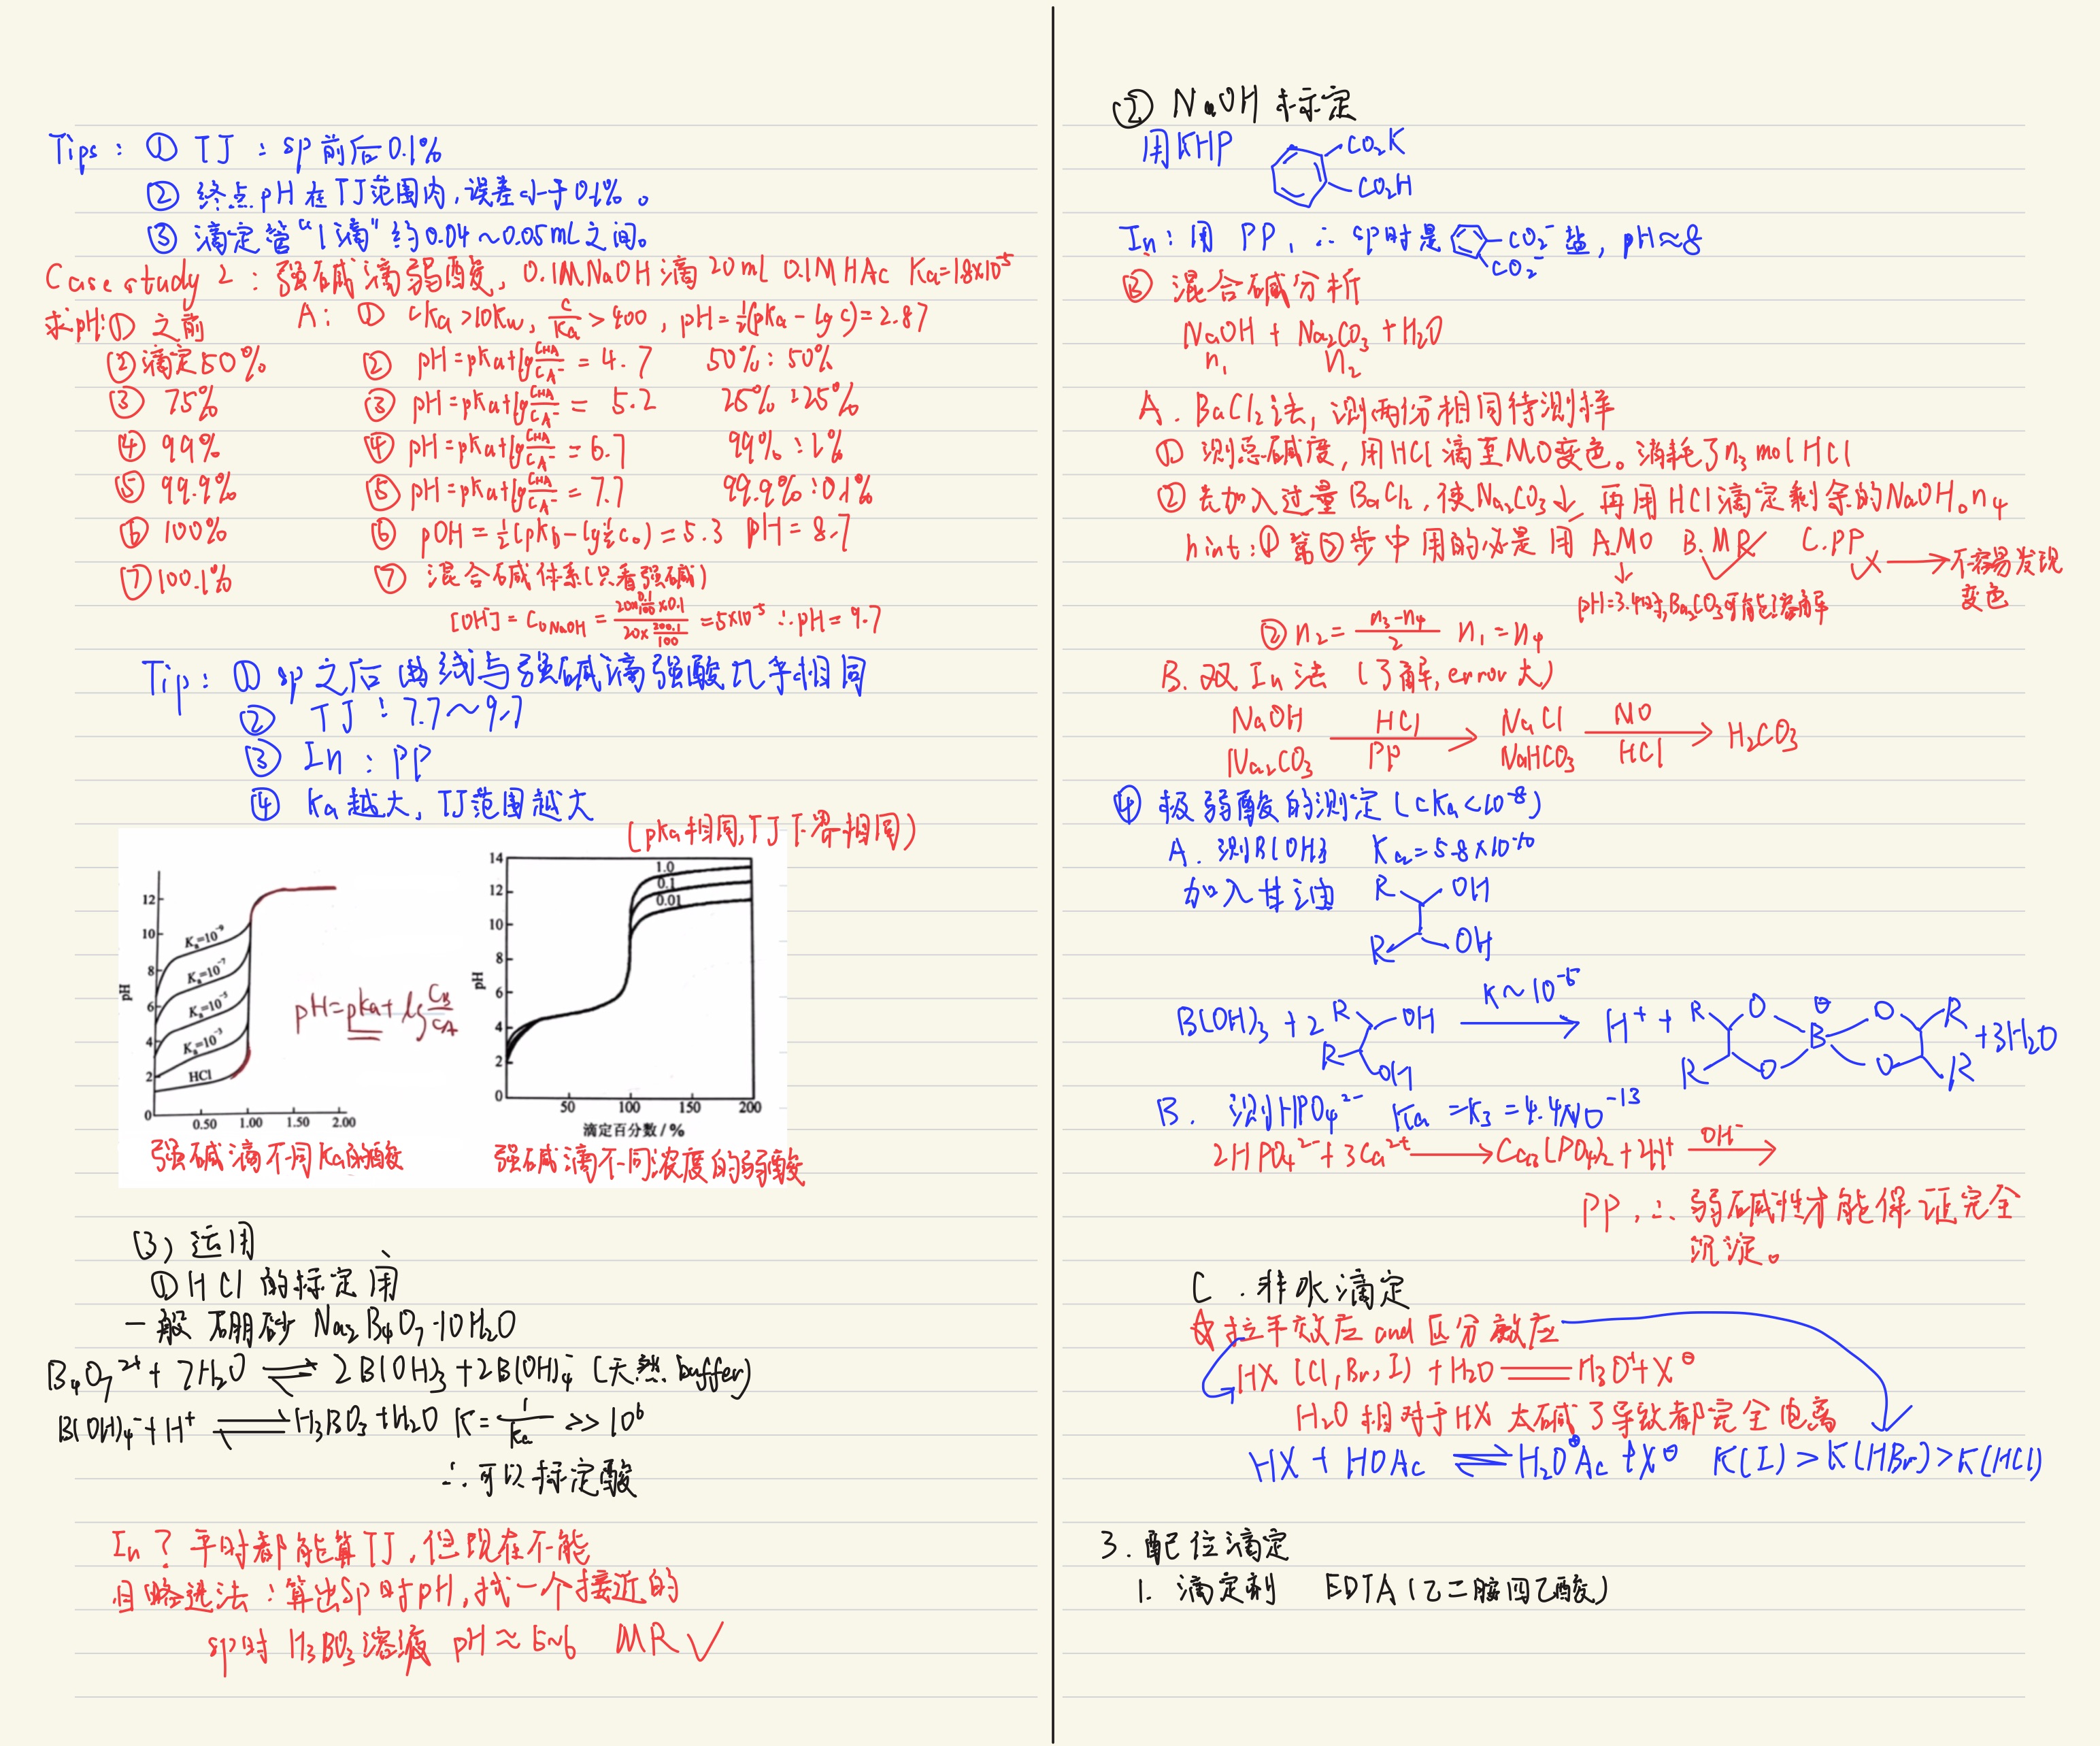 Tips: ① TJ: sp前后0.1%
② 终点pH在TJ范围内,误差小于0.1%。
③ 滴定管"1滴"约0.04~0.05mL之间。
Case study 2: 强碱滴弱酸, 0.1M NaOH滴 20ml 0.1M HAc Ka=1.8×10⁻⁵
求pH:① 之前 A: ① cKa>10Kw, c/Ka>400, pH=½(pKa-lgc)=2.87
②滴定50% ② pH=pKa+lg CHA/CA⁻ = 4.7 50%:50%
③ 75% ③ pH=pKa+lg CHA/CA⁻ = 5.2 25%:25%
④ 99% ④ pH=pKa+lg CHA/CA⁻ = 6.7 99%:1%
⑤ 99.9% ⑤ pH=pKa+lg CHA/CA⁻ = 7.7 99.9%:0.1%
⑥ 100% ⑥ pOH=½(pKb-lg½c₀)=5.3 pH=8.7
⑦ 100.1% ⑦ 混合碱体系(只看强碱)
[OH]=C₀NaOH= (20×0.1/100×0.1)/(20×200.1/100) =5×10⁻⁵ ∴pH=9.7
Tip: ① sp之后曲线与强碱滴强酸几乎相同
② TJ: 7.7~9.7
③ In: PP
④ Ka越大, TJ范围越大
(pKa相同,TJ下界相同)
pH
12
10
8
6
4
2
0
Ka=10⁻⁹
Ka=10⁻⁷
Ka=10⁻⁵
Ka=10⁻³
HCl
0.50 1.00 1.50 2.00
pH=pKa+lg CB/CA
强碱滴不同Ka的酸
pH
14
12
10
8
6
4
2
0
1.0
0.1
0.01
50 100 150 200
滴定百分数/%
强碱滴不同浓度的弱酸
(3) 运用
① HCl的标定用
一般硼砂 Na₂B₄O₇·10H₂O
B₄O₇²⁺+7H₂O ⇌ 2B(OH)₃+2B(OH)₄⁻ (天然buffer)
B(OH)₄⁻+H⁺ ⇌ H₃BO₃+H₂O K=1/Ka >>10⁶
∴可以标定酸
In? 平时都能算TJ,但现在不能
:算出sp时pH,找一个接近的
sp时 H₃BO₃溶液 pH≈5~6 MR ✓
② NaOH标定
用KHP CO₂K
CO₂H
In: 用 PP, ∴sp时是 CO₂⁻ CO₂⁻ 盐, pH≈8
③ 混合碱分析
NaOH + Na₂CO₃ + H₂O
n₁ n₂
A. BaCl₂法, 测两份相同待测样
① 测总碱度, 用HCl滴至MO变色。消耗了n₃ mol HCl
② 去加入过量BaCl₂, 使Na₂CO₃↓, 再用HCl滴定剩余的NaOH。n₄
hint: ① 第②步中用的必是用 A.MO B.MR✓ C.PP × → 不容易发现变色
↓ pH=3.4时,BaCO₃可能溶解
② n₂=(n₃-n₄)/2 n₁=n₄
B. 双In法 (了解, error大)
NaOH HCl NaCl MO
Na₂CO₃ PP → NaHCO₃ HCl → H₂CO₃
④ 极弱酸的测定 (cKa<10⁻⁸)
A. 测B(OH)₃ Ka=5.8×10⁻¹⁰
加入甘油 R OH
R OH
B(OH)₃ + 2 R OH R OH K~10⁻⁵ → H⁺ + R O B⊖ O R R O O R +3H₂O
B. 测HPO₄²⁻ Ka=K₃=4.4×10⁻¹³
2HPO₄²⁻+3Ca²⁺ → Ca₃(PO₄)₂+2H⁺ OH⁻ →
PP, ∴弱碱性才能保证完全
沉淀。
C. 非水滴定
☆拉平效应 and 区分效应
HX (Cl, Br, I) + H₂O = H₃O⁺+X⊖
H₂O相对于HX太碱了导致都完全电离
HX + HOAc ⇌ H₂O⊕Ac + X⊖ K(I)>K(HBr)>K(HCl)
3. 配位滴定
1. 滴定剂 EDTA (乙二胺四乙酸)